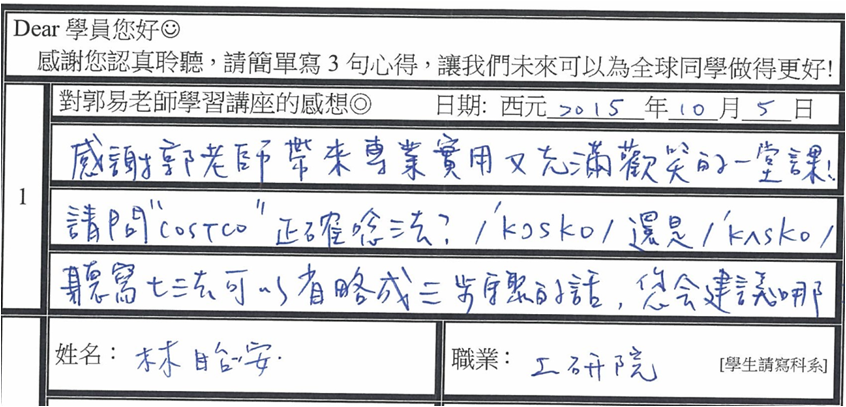 Dear 學員您好☺
感謝您認真聆聽，請簡單寫 3 句心得，讓我們未來可以為全球同學做得更好!
對郭易老師學習講座的感想◎ 日期: 西元 2015 年 10 月 5 日
1
感謝郭老師帶來專業實用又充滿歡笑的一堂課!
請問"COSTCO"正確唸法? /ˈkɔsko/ 還是 /ˈkʌsko/
聽寫七三法可以省略成三步驟的話, 您会建議哪
姓名： 林 安 職業： 工研院 [學生請寫科系]